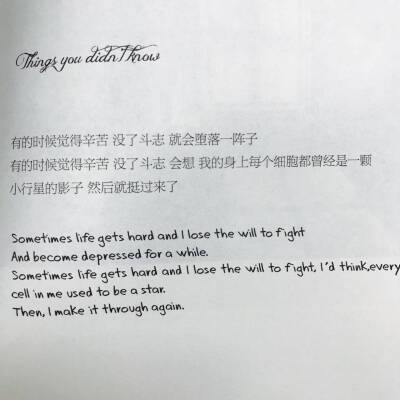 Things you didn't know
有的时候觉得辛苦 没了斗志 就会堕落一阵子
有的时候觉得辛苦 没了斗志 会想 我的身上每个细胞都曾经是一颗
小行星的影子 然后就挺过来了
Sometimes life gets hard and I lose the will to fight
And become depressed for a while.
Sometimes life gets hard and I lose the will to fight, I'd think,every
cell in me used to be a star.
Then, I make it through again.